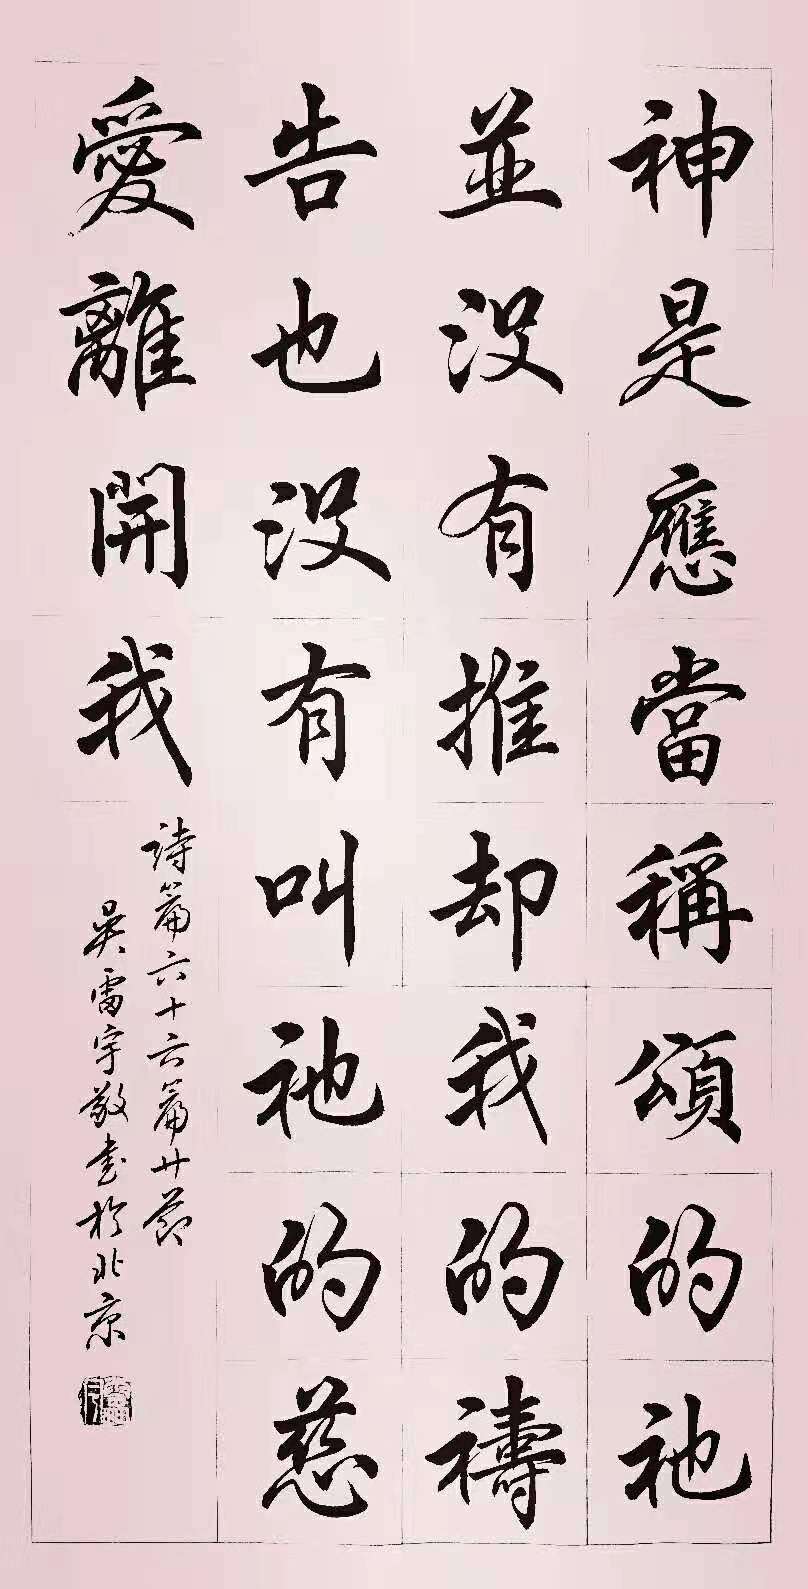 神是應當稱頌的祂
並没有推却我的禱
告也没有叫祂的慈
愛離開我
詩篇六十六篇廿節
吴雷宇敬书於北京